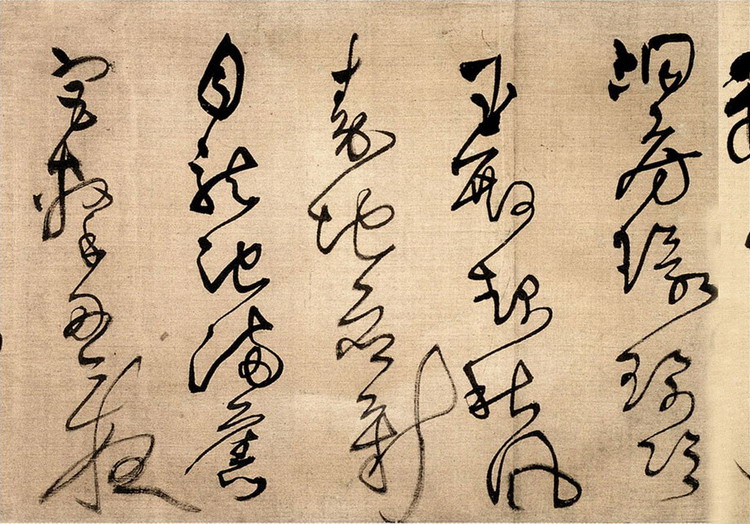 洞房環珮冷
玉殿起秋風
秦地應新
月龍池滿舊
宮繫舟今夜